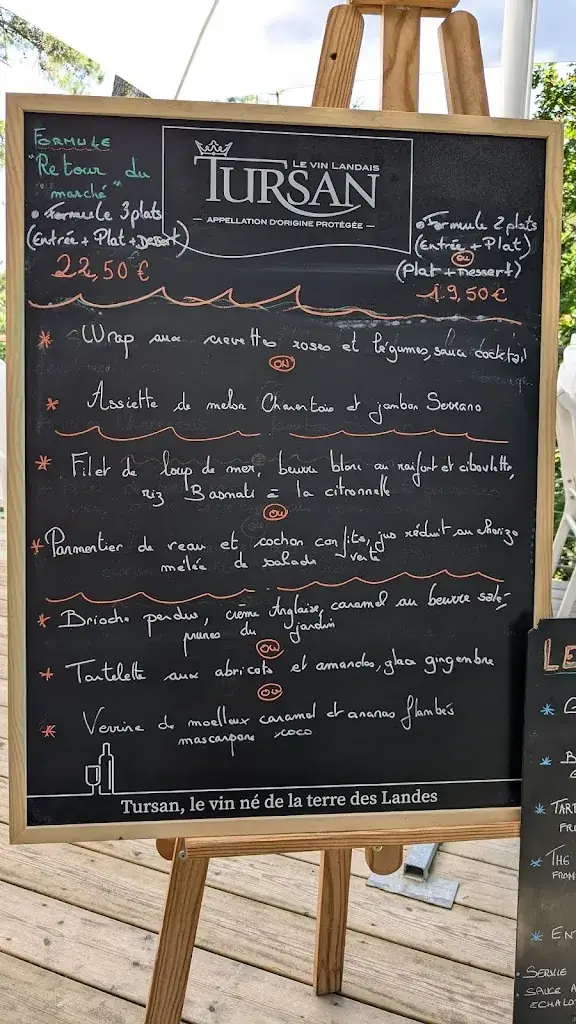 FORMULE
"Retour du
marché"
• Formule 3 plats
(Entrée + Plat + Dessert)
22,50 €
LE VIN LANDAIS
TURSAN
— APPELLATION D'ORIGINE PROTÉGÉE —
• Formule 2 plats
(Entrée + Plat)
ou
(Plat + Dessert)
19,50 €
* Wrap aux crevettes roses et légumes, sauce cocktail
ou
* Assiette de melon Charentais et jambon Serrano
* Filet de loup de mer, beurre blanc au raifort et ciboulette,
riz Basmati à la citronnelle
ou
* Parmentier de veau et cochon confits, jus réduit au chorizo
mêlée de salade verte
* Brioche perdue, crème Anglaise, caramel au beurre salé -
prunes du jardin
ou
* Tartelette aux abricots et amandes, glace gingembre
ou
* Verrine de moelleux caramel et ananas flambés
mascarpone coco
Tursan, le vin né de la terre des Landes
LE
*
* B
* TART
FRI
* THE
FROM
* EN
• SERVIE
• SAUCE A
ECHALOT